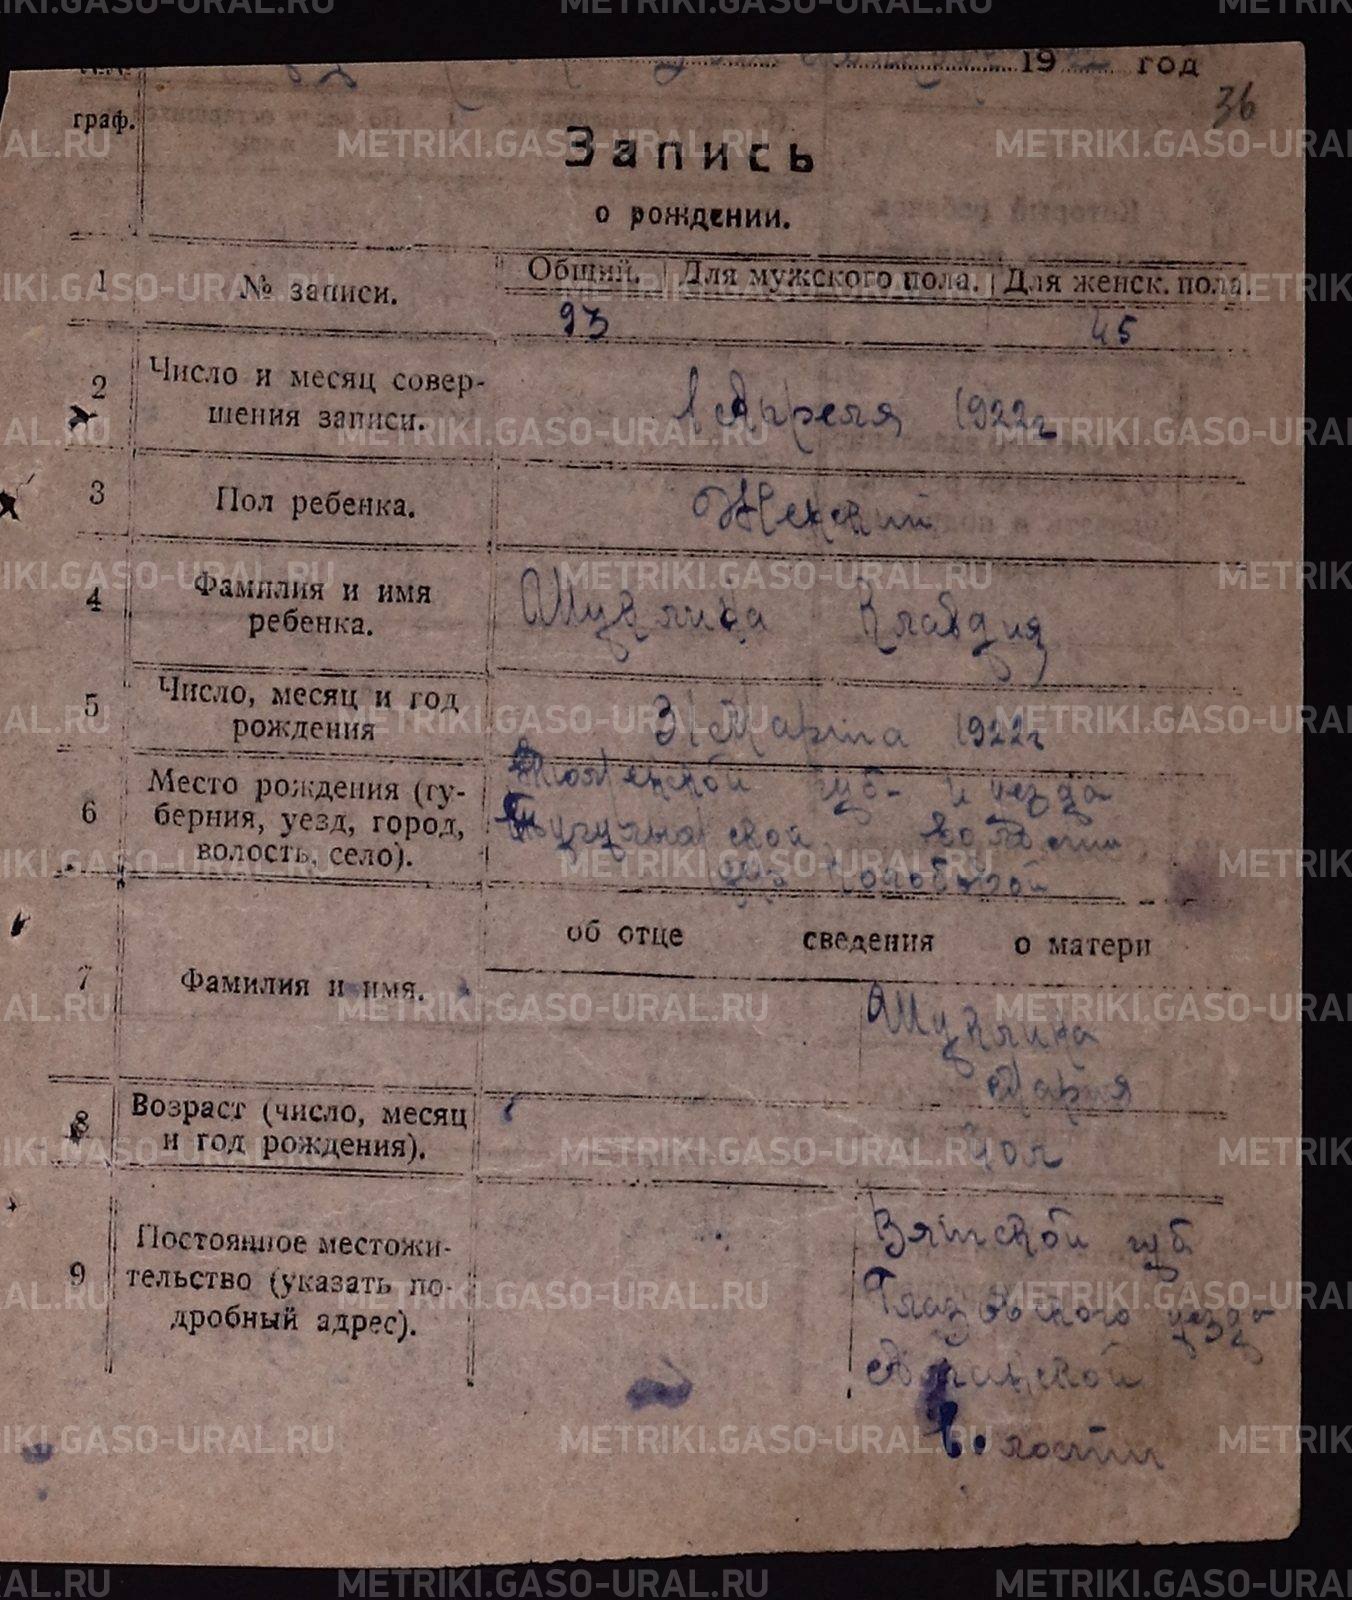 19 22 год
36
№№ граф.
Запись
о рождении.
1 № записи. Общий. Для мужского пола. Для женск. пола.
93 45
2 Число и месяц совершения записи. 1 Апреля 1922 г
3 Пол ребенка. Женский
4 Фамилия и имя ребенка. Шуклина Клавдия
5 Число, месяц и год рождения 31 Марта 1922 г
6 Место рождения (губерния, уезд, город, волость, село).
Тюменской губ. и уезда
волости
дер
об отце сведения о матери
7 Фамилия и имя. Шуклина
Мария
8 Возраст (число, месяц и год рождения).
9 Постоянное местожительство (указать подробный адрес).
Вятской губ
Глазовского уезда
волости
METRIKI.GASO-URAL.RU